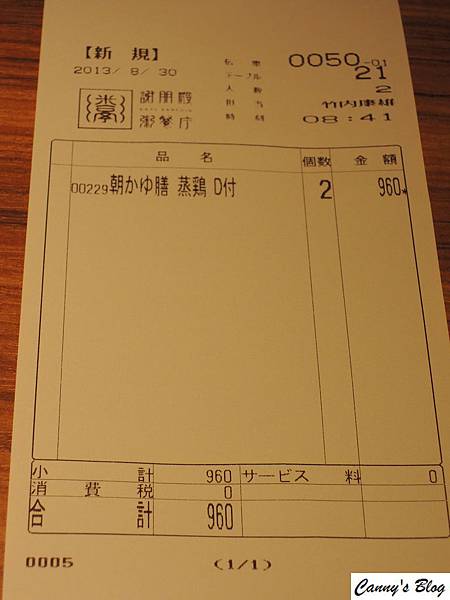 【新 規】
伝票 0050-01
2013/ 8/ 30
テーブル 21
人数 2
謝朋殿
粥餐庁
担当 竹内康雄
時刻 08:41
品名 個数 金額
00229朝かゆ膳 蒸鶏 D付 2 960
小計 960 サービス料 0
消費税 0
合計 960
0005 (1/1)
Canny's Blog